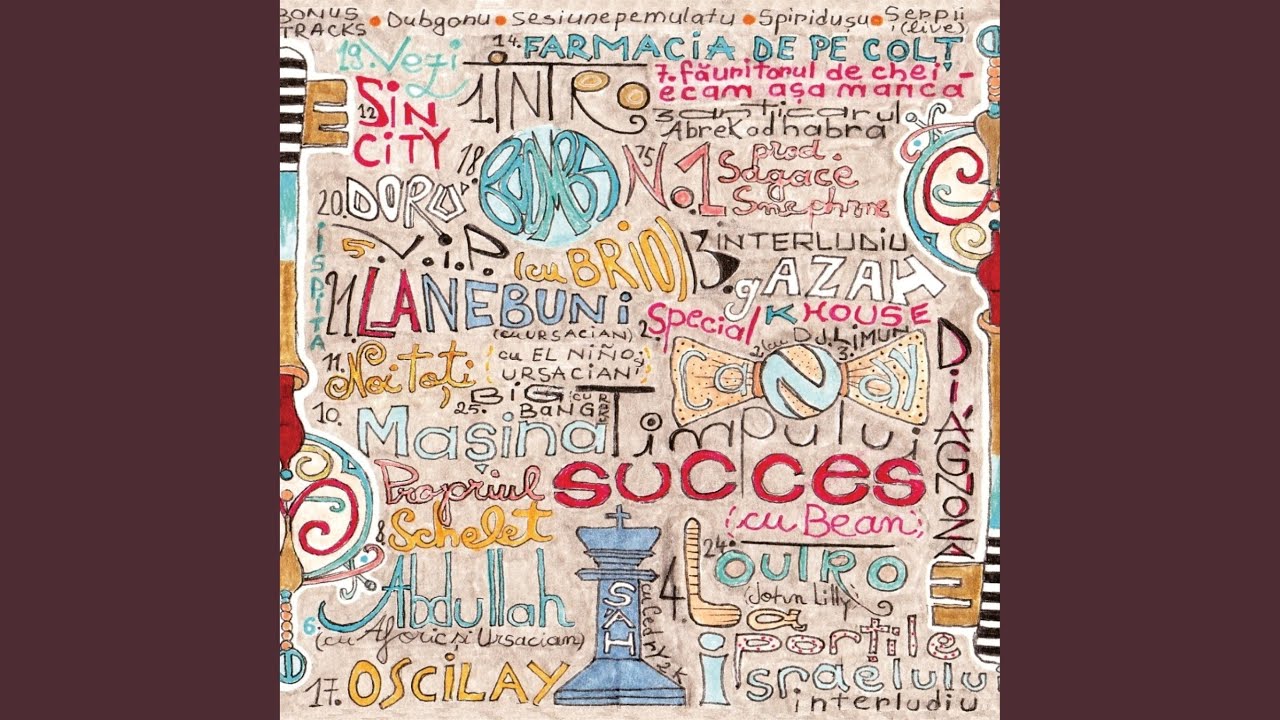 BONUS TRACKS • Dubgonu • Sesiunepemulatu • Spiridușu • Șerpii (live)
19. Vezi
14. FARMACIA DE PE COLȚ
1. INTRO
7. făuritorul de chei -
ecam așa manca
12 Sin City
3 anticarul
Abrekodhabra
18. BOMBA
15 N.1
prod. Sagace
20. DORU
5. V.I.P. (cu BRIO)
13. INTERLUDIU
gAZAH
ISPITA
21. LANEBUNi
(cu URSACIAN)
2. Special K HOUSE
2. (cu DJ. LiMUN
3. CaNdy
DiAGNOZA
11. Noi Toți
(cu EL NIÑO și URSACIAN)
25. BIG BANG
10. Mașina Timpului
Propriul Schelet
8
succes
(cu Bean)
Abdullah
6. (cu Aforic și Ursaciam)
ȘAH
cu Cedry2k
24. OUTRO
(John Lilly)
4. La porțile israelului
interludiu
17. OSCILAY